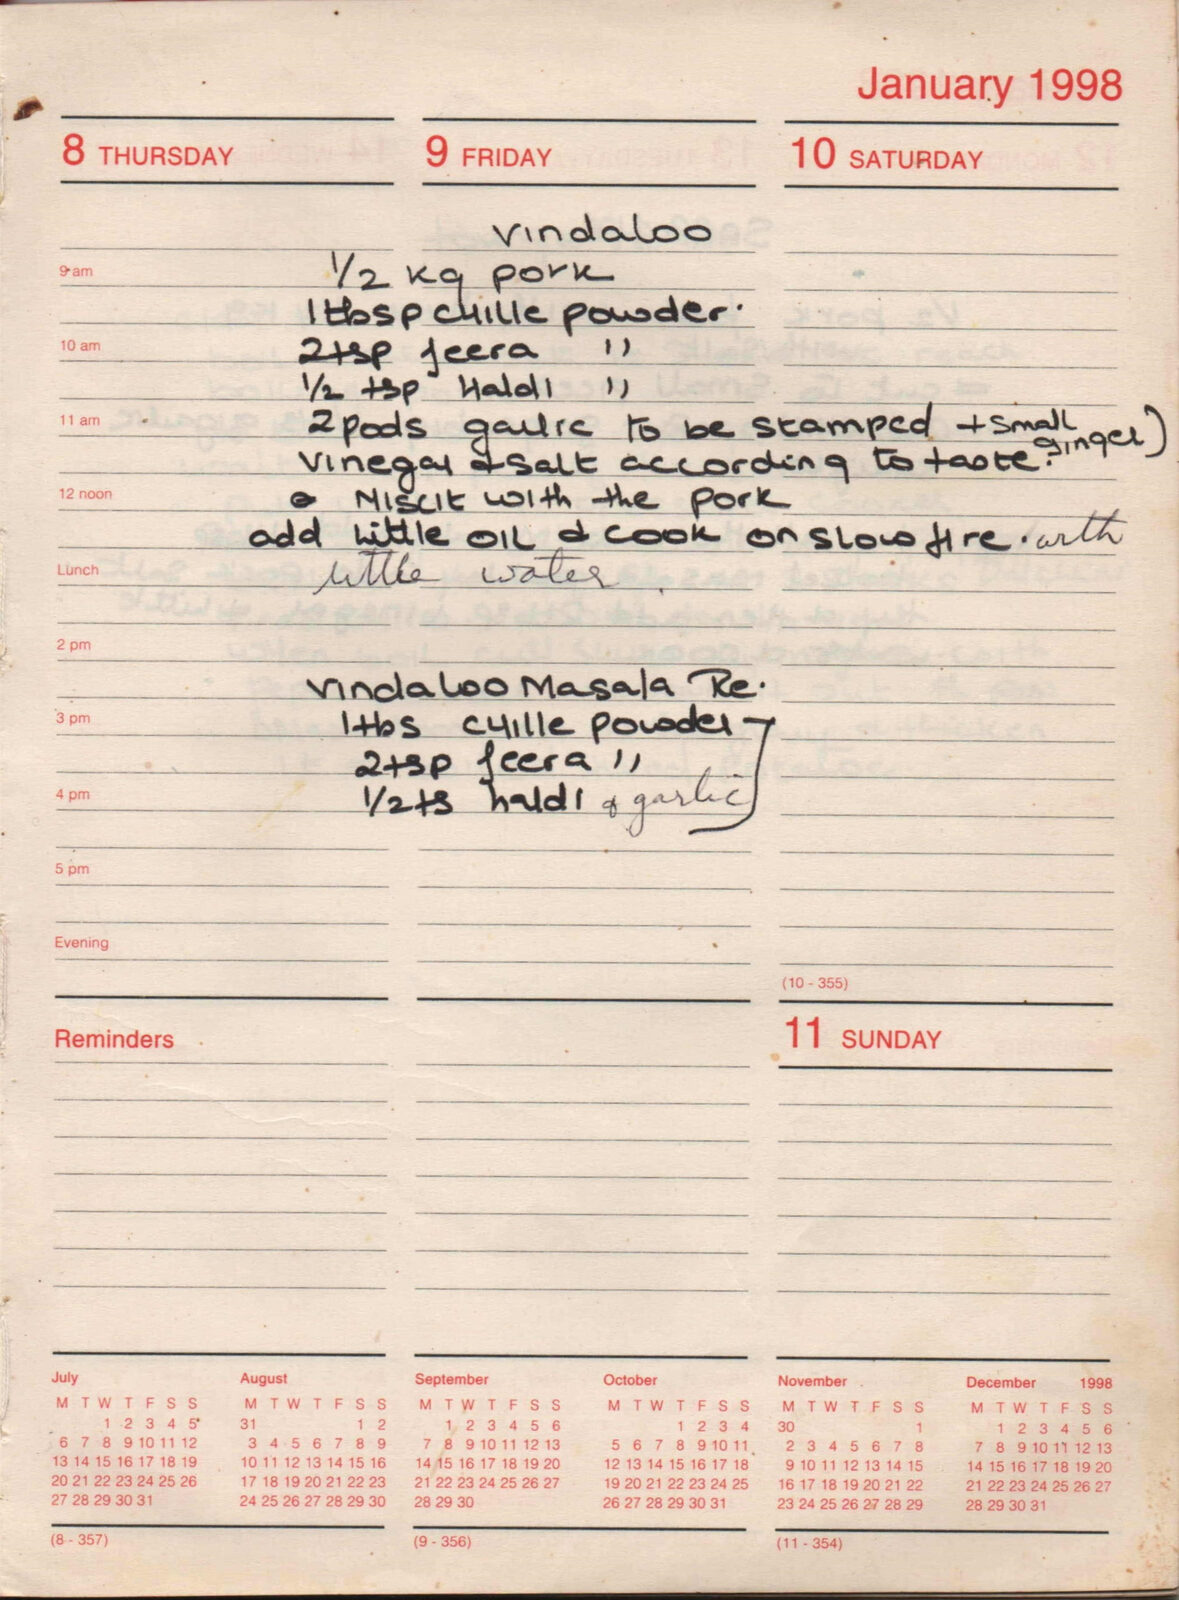 January 1998
8 THURSDAY
9 FRIDAY
10 SATURDAY
vindaloo
9 am
1/2 kg pork
1 tbsp chille powder.
10 am
2 tsp jeera "
1/2 tsp Haldi "
11 am
2 pods garlic to be stamped + small ginger)
vinegar & salt according to taste.
12 noon
with the pork
add little oil & cook on slow fire. with
Lunch
little water
2 pm
vindaloo Masala Re.
3 pm
1 tbs chille powder
2 tsp jeera "
4 pm
1/2 ts haldi & garlic
5 pm
Evening
(10 - 355)
Reminders
11 SUNDAY
July
M T W T F S S
1 2 3 4 5
6 7 8 9 10 11 12
13 14 15 16 17 18 19
20 21 22 23 24 25 26
27 28 29 30 31
August
M T W T F S S
31 1 2
3 4 5 6 7 8 9
10 11 12 13 14 15 16
17 18 19 20 21 22 23
24 25 26 27 28 29 30
September
M T W T F S S
1 2 3 4 5 6
7 8 9 10 11 12 13
14 15 16 17 18 19 20
21 22 23 24 25 26 27
28 29 30
October
M T W T F S S
1 2 3 4
5 6 7 8 9 10 11
12 13 14 15 16 17 18
19 20 21 22 23 24 25
26 27 28 29 30 31
November
M T W T F S S
30 1
2 3 4 5 6 7 8
9 10 11 12 13 14 15
16 17 18 19 20 21 22
23 24 25 26 27 28 29
December 1998
M T W T F S S
1 2 3 4 5 6
7 8 9 10 11 12 13
14 15 16 17 18 19 20
21 22 23 24 25 26 27
28 29 30 31
(8 - 357)
(9 - 356)
(11 - 354)